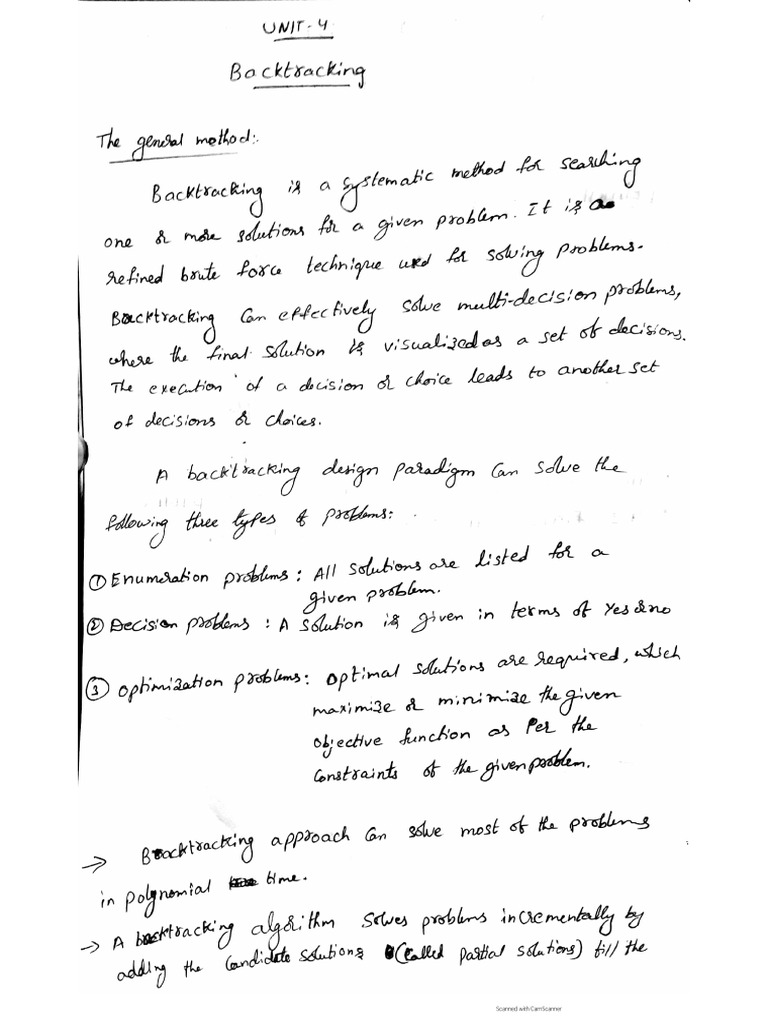 UNIT-4
Backtracking
The general method:.
Backtracking is a systematic method for searching
one or more solutions for a given problem. It is a
refined brute force technique used for solving problems.
Backtracking can effectively solve multi-decision problems,
where the final solution is visualized as a set of decisions.
The execution of a decision or choice leads to another set
of decisions or choices.
A backtracking design paradigm can solve the
following three types of problems:
① Enumeration problems: All solutions are listed for a
given problem.
② Decision problems: A solution is given in terms of Yes or no
③ Optimization problems: Optimal solutions are required, which
maximize or minimize the given
objective function as per the
constraints of the given problem.
→ Backtracking approach can solve most of the problems
in polynomial time.
→ A backtracking algorithm solves problems incrementally by
adding the candidate solutions (called partial solutions) till the
Scanned with CamScanner